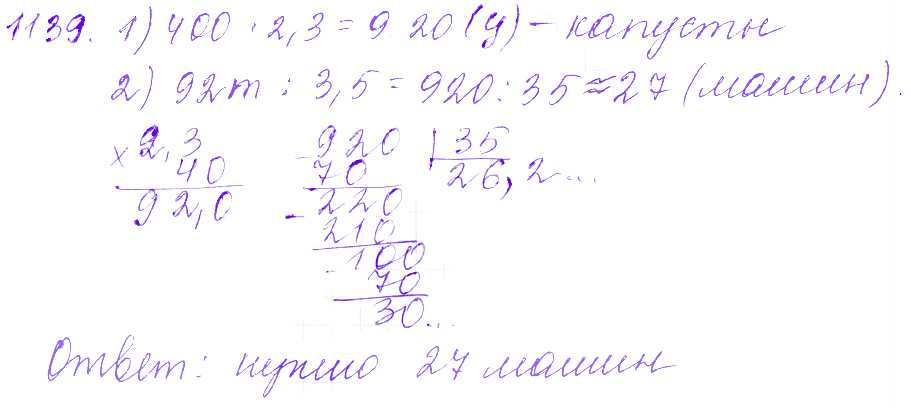 1139. 1) 400 · 2,3 = 920 (ц) – капусты
2) 92т : 3,5 = 920 : 35 ≈ 27 (машин).
× 2,3 - 920 | 35
40 70 26,2...
92,0 - 220
210
- 100
70
30...
Ответ: нужно 27 машин